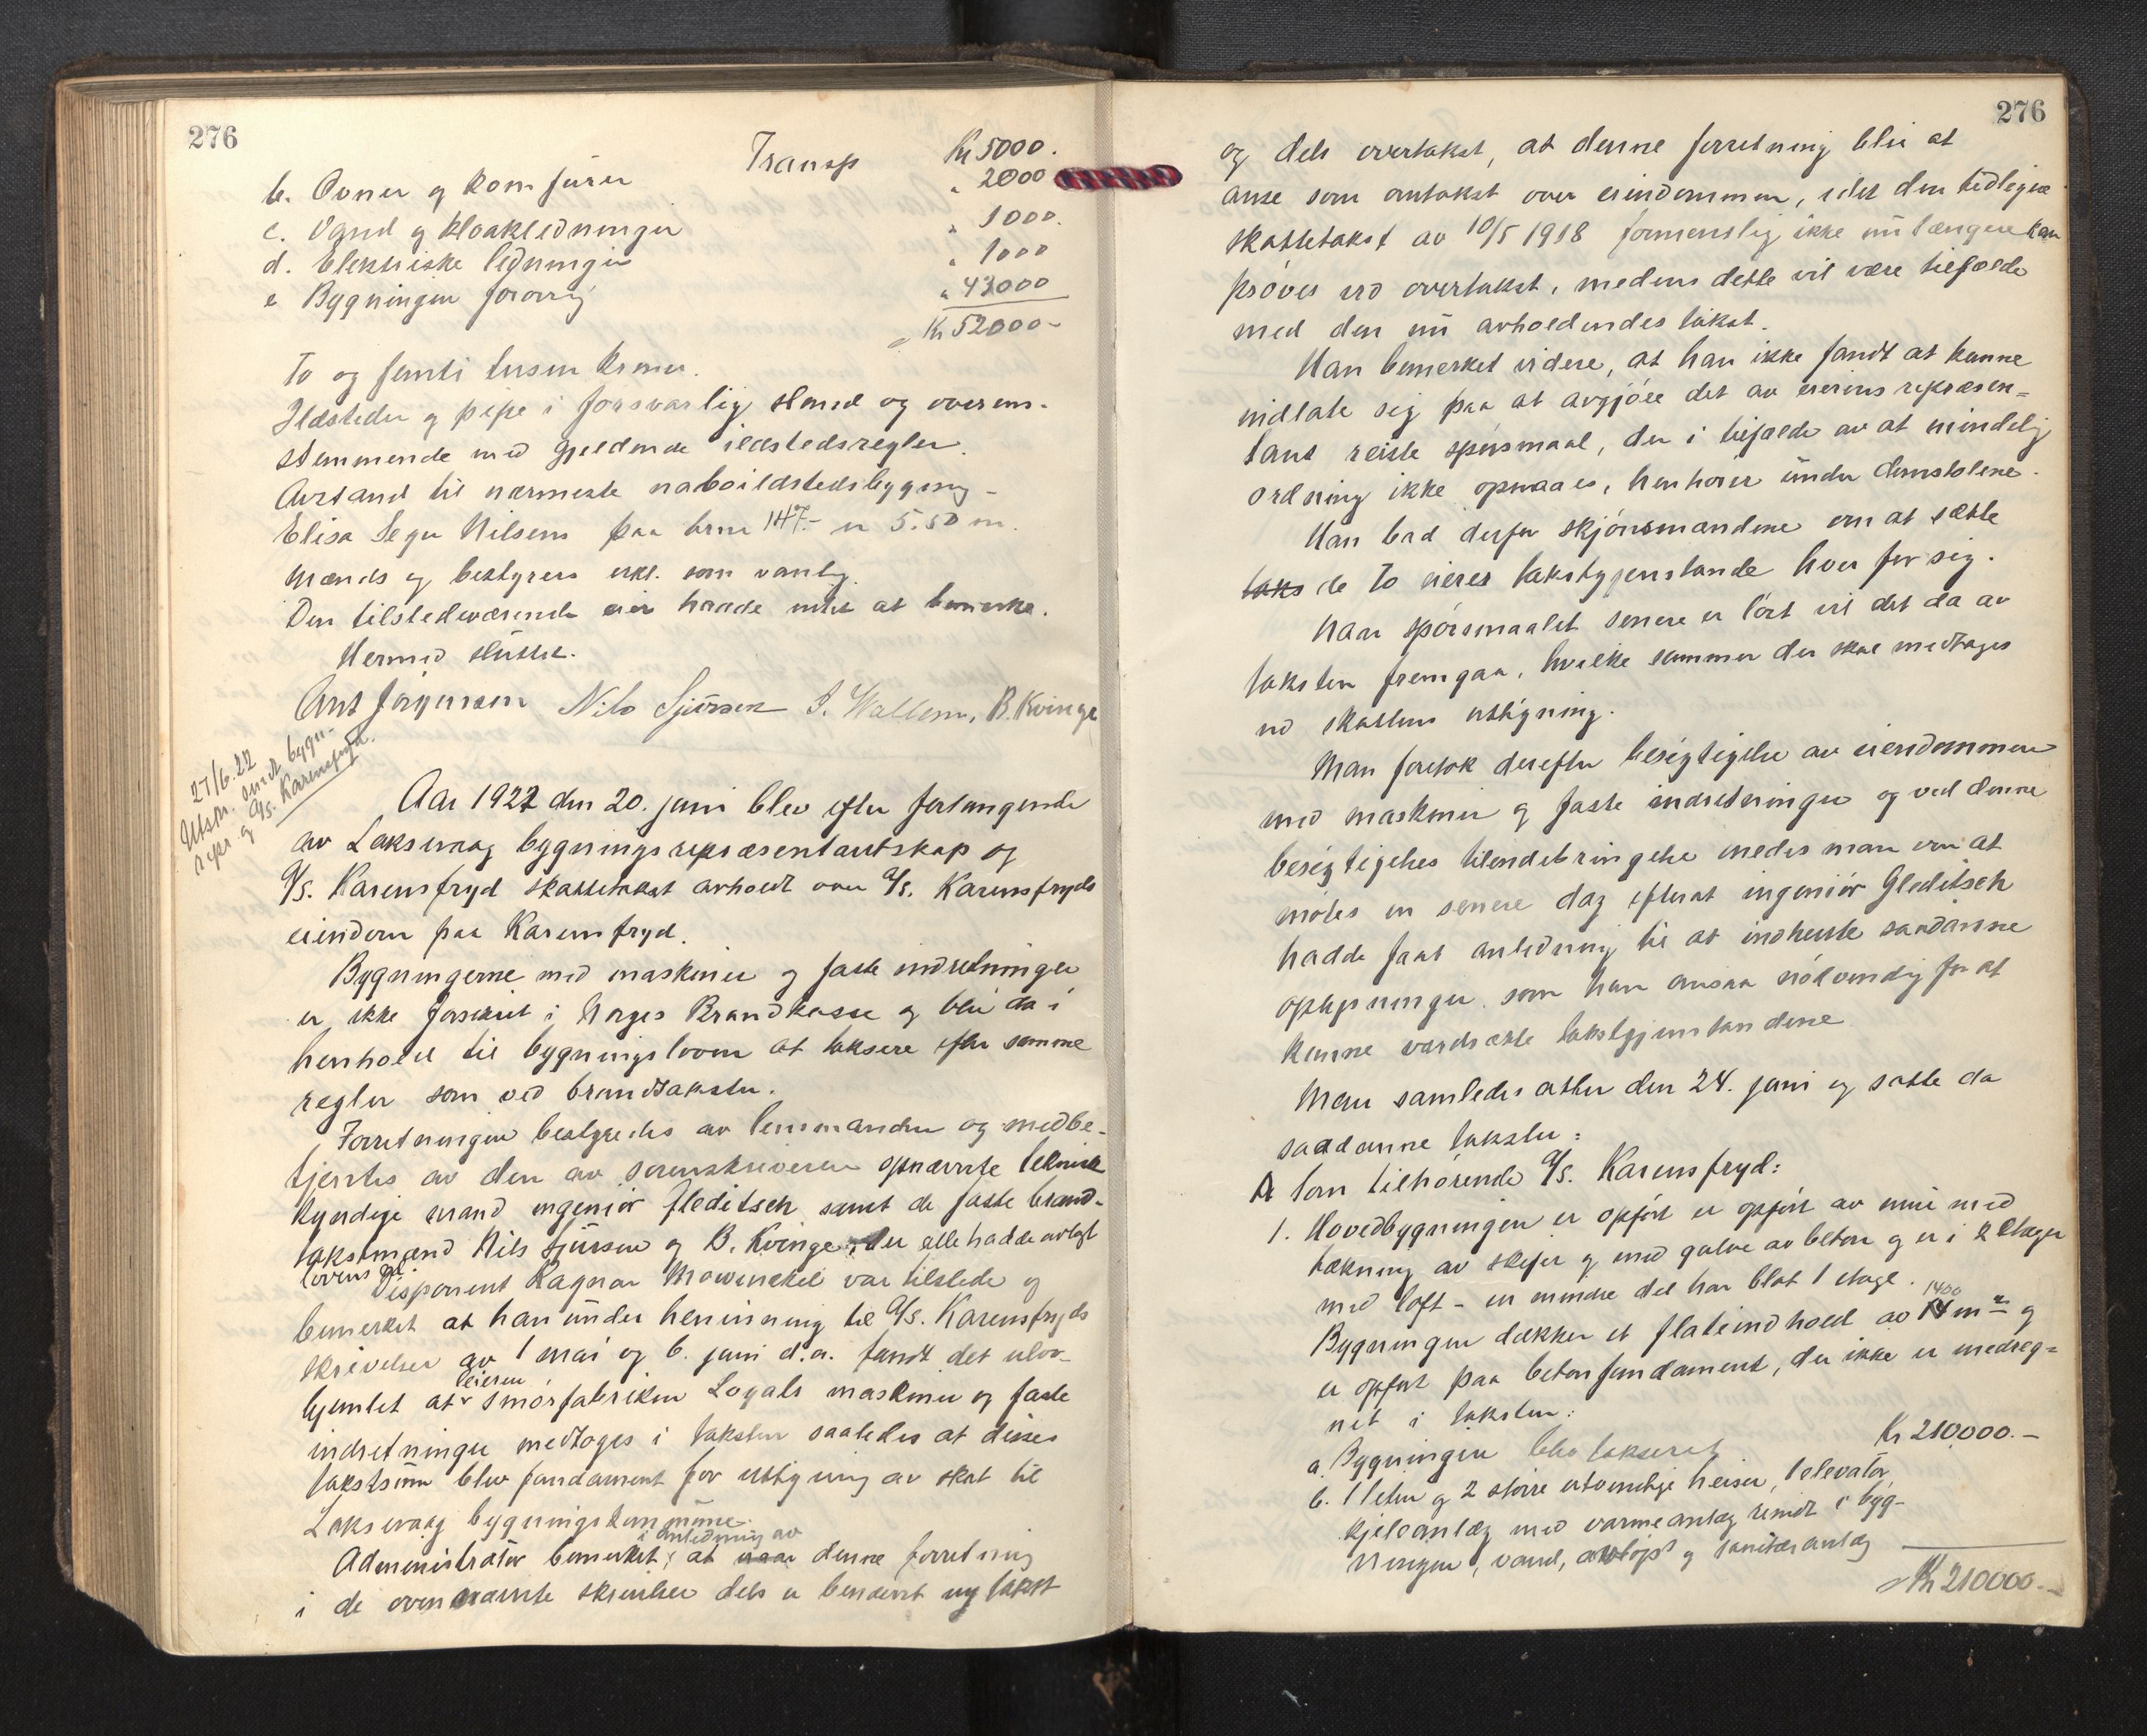 276
Transp Kr 5000.
b. Ovner og komfurer " 2000
c. Vand og kloakledninger " 1000.
d. Elektriske ledninger " 1000
e Bygningen forøvrig " 43000
Kr 52000-
To og femti tusen kroner.
Ildsteder og pipe i forsvarlig stand og overens-
stemmende med gjeldende ildstedsregler.
Avstand til nærmeste naboildstedsbygning -
Elisa Nilsens paa brnr 147.- er 5.50 m.
Mænds og bestyrers erkl. som vanlig.
Den tilstedeværende eier hadde intet at bemerke.
Hermed sluttet.
Ant Jørgensen Nils Sjursen J. Wallem, B. Kvinge
27/6.22
Utskr. sendt bygn-
repr og A/S. Karensfryd.
Aar 1922 den 20. juni blev efter forlangende
av Laksevaag bygningsrepræsentantskap og
A/S. Karensfryd skattetakst avholdt over A/S. Karensfryds
eiendom paa Karensfryd.
Bygningerne med maskiner og faste indretninger
er ikke forsikret i Norges Brandkasse og blir da i
henhold til bygningsloven at taksere efter samme
regler som ved brandtakster.
Forretningen bestyredes av lensmanden og medbe-
tjentes av den av sorenskriveren opnævnte teknisk
kyndige mand ingeniør Gleditsch samt de faste brand-
takstmænd Nils Sjursen og B. Kvinge, der alle hadde avlagt
lovens ed.
Disponent Ragnar Mowinckel var tilstede og
bemerket at han under henvisning til A/S. Karensfryds
skrivelser av 1 mai og 6. juni d.a. fandt det ulov-
hjemlet at eieren smørfabrikken Loyals maskiner og faste
indretninger medtoges i taksten saaledes at disses
takstsum blev fundament for utligning av skat til
Laksevaag bygningskommune.
Administrator bemerket, at naar i anledning av denne forretning
i de ovennævnte skrivelser dels er benævnt ny takst
276
og dels overtakst, at denne forretning blir at
anse som omtakst over eiendommen, idet den tidligere
skattetakst av 10/5 1918 formentlig ikke nu længere kan
prøves ved overtakst, medens dette vil være tilfælde
med den nu avholdendes takst.
Han bemerket videre, at han ikke fandt at kunne
indlate sig paa at avgjøre det av eierens repræsen-
tant reiste spørsmaal, der i tilfælde av at mindelig
ordning ikke opnaaes, henhører under domstolene.
Han bad derfor skjønsmændene om at sætte
taks de to eieres takstgjenstande hver for sig.
Naar spørsmaalet senere er løst vil det da av
taksten fremgaa, hvilke summer der skal medtages
ved skattens utligning.
Man foretok derefter besigtigelse av eiendommen
med maskiner og faste indretninger og ved denne
besigtigelses tilendebringelse enedes man om at
møtes en senere dag efterat ingeniør Gleditsch
hadde faat anledning til at indhente saadanne
oplysninger som han ansaa nødvendig for at
kunne værdsætte takstgjenstandene
Man samledes atter den 24. juni og satte da
saadanne takster:
A som tilhørende A/S. Karensfryd:
1. Hovedbygningen er opført er opført av mur med
tækning av skifer og med gulve av beton og er i 2 etager
med loft - en mindre del har blot 1 etage.
Bygningen dækker et flateindhold av 1400 m² og
er opført paa betonfundament, der ikke er medreg-
net i taksten:
a. Bygningen blev taksert Kr 210,000.-
b. 1 liten og 2 større utvendige heiser, 1 elevator,
kjeleanlæg med varmeanlæg rundt i byg-
ningen, vand, avløps og sanitæranlæg
Kr 210000.-